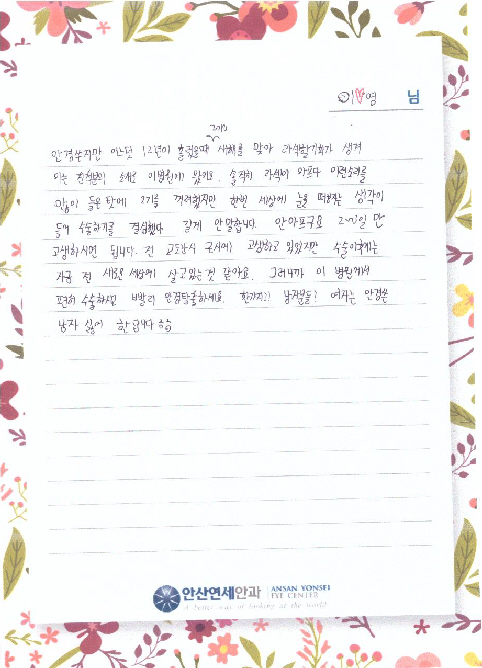 이♥영 님
2013
안경쓴지만 어느덧 12년이 흘렀을때 새해를 맞아 라식할기회가 생겨
아는 친척분의 소개로 이병원에 왔어요. 솔직히 라식이 아프다 이런소리를
많이 들은 탓에 고기를 격려했지만 한번 세상에 눈을 떠보자는 생각이
들어 수술하기를 결심했다 길게 안말합니다. 안아프구요 2~3일 만
고생하시면 됩니다. 전 고도난시 근시에 고생하고 있었지만 수술이후에는
지금 전 새로운 세상에 살고있는것 같아요. 그러니까 이 병원에서
편히 수술하시고 빨리 안경탈출하세요. 한가지!! 남자분들? 여자는 안경쓴
남자 싫어 한답니다 ㅎㅎ
안산연세안과 ANSAN YONSEI EYE CENTER
A better way of looking at the world